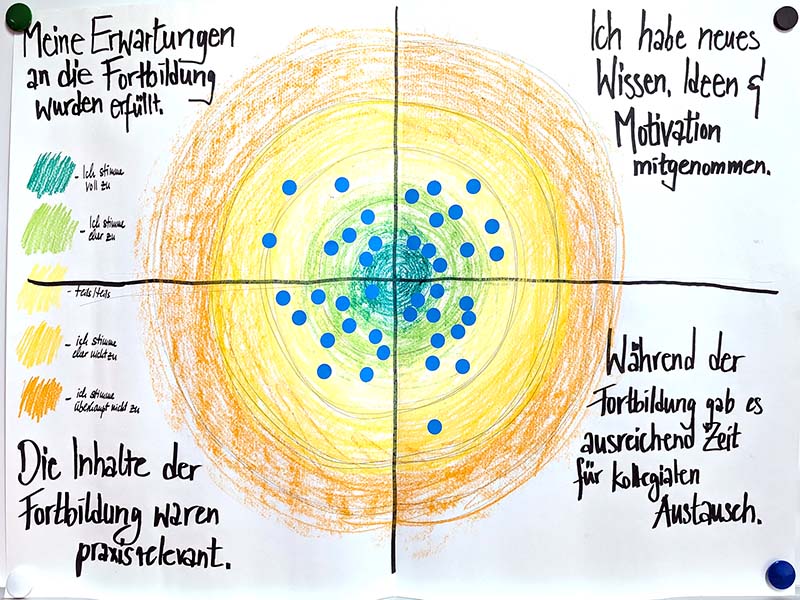 Meine Erwartungen
an die Fortbildung
wurden erfüllt.
Ich habe neues
Wissen, Ideen &
Motivation
mitgenommen.
- Ich stimme
voll zu
- Ich stimme
eher zu
- teils/teils
- ich stimme
eher nicht zu
- ich stimme
überhaupt nicht zu
Die Inhalte der
Fortbildung waren
praxisrelevant.
Während der
Fortbildung gab es
ausreichend Zeit
für kollegialen
Austausch.